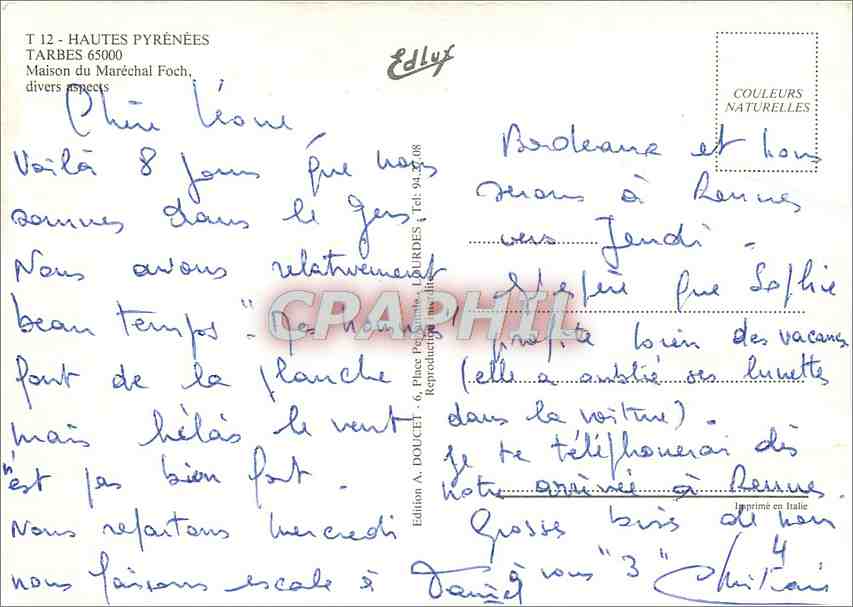 T 12 - HAUTES PYRÉNÉES
TARBES 65000
Maison du Maréchal Foch,
divers aspects
Edlux
COULEURS
NATURELLES
Chère Léone,
Voilà 8 jours que nous
sommes dans le Gers.
Nous avons relativement
beau temps. "Les hommes"
font de la planche
mais hélas le vent
n'est pas bien fort.
Nous repartons mercredi
nous faisons escale à
Bordeaux et nous
serons à Rennes
vers Jeudi -
J'espère que Sophie
profite bien des vacances
(elle a oublié ses lunettes
dans la voiture).
Je te téléphonerai dès
notre arrivée à Rennes.
Grosses bises de nous
4
à vous "3"
Daniel
Edition A. DOUCET - 6, Place Peyramale - LOURDES - Tel: 94.27.08
Reproduction interdite
Imprimé en Italie
CPAPHIL